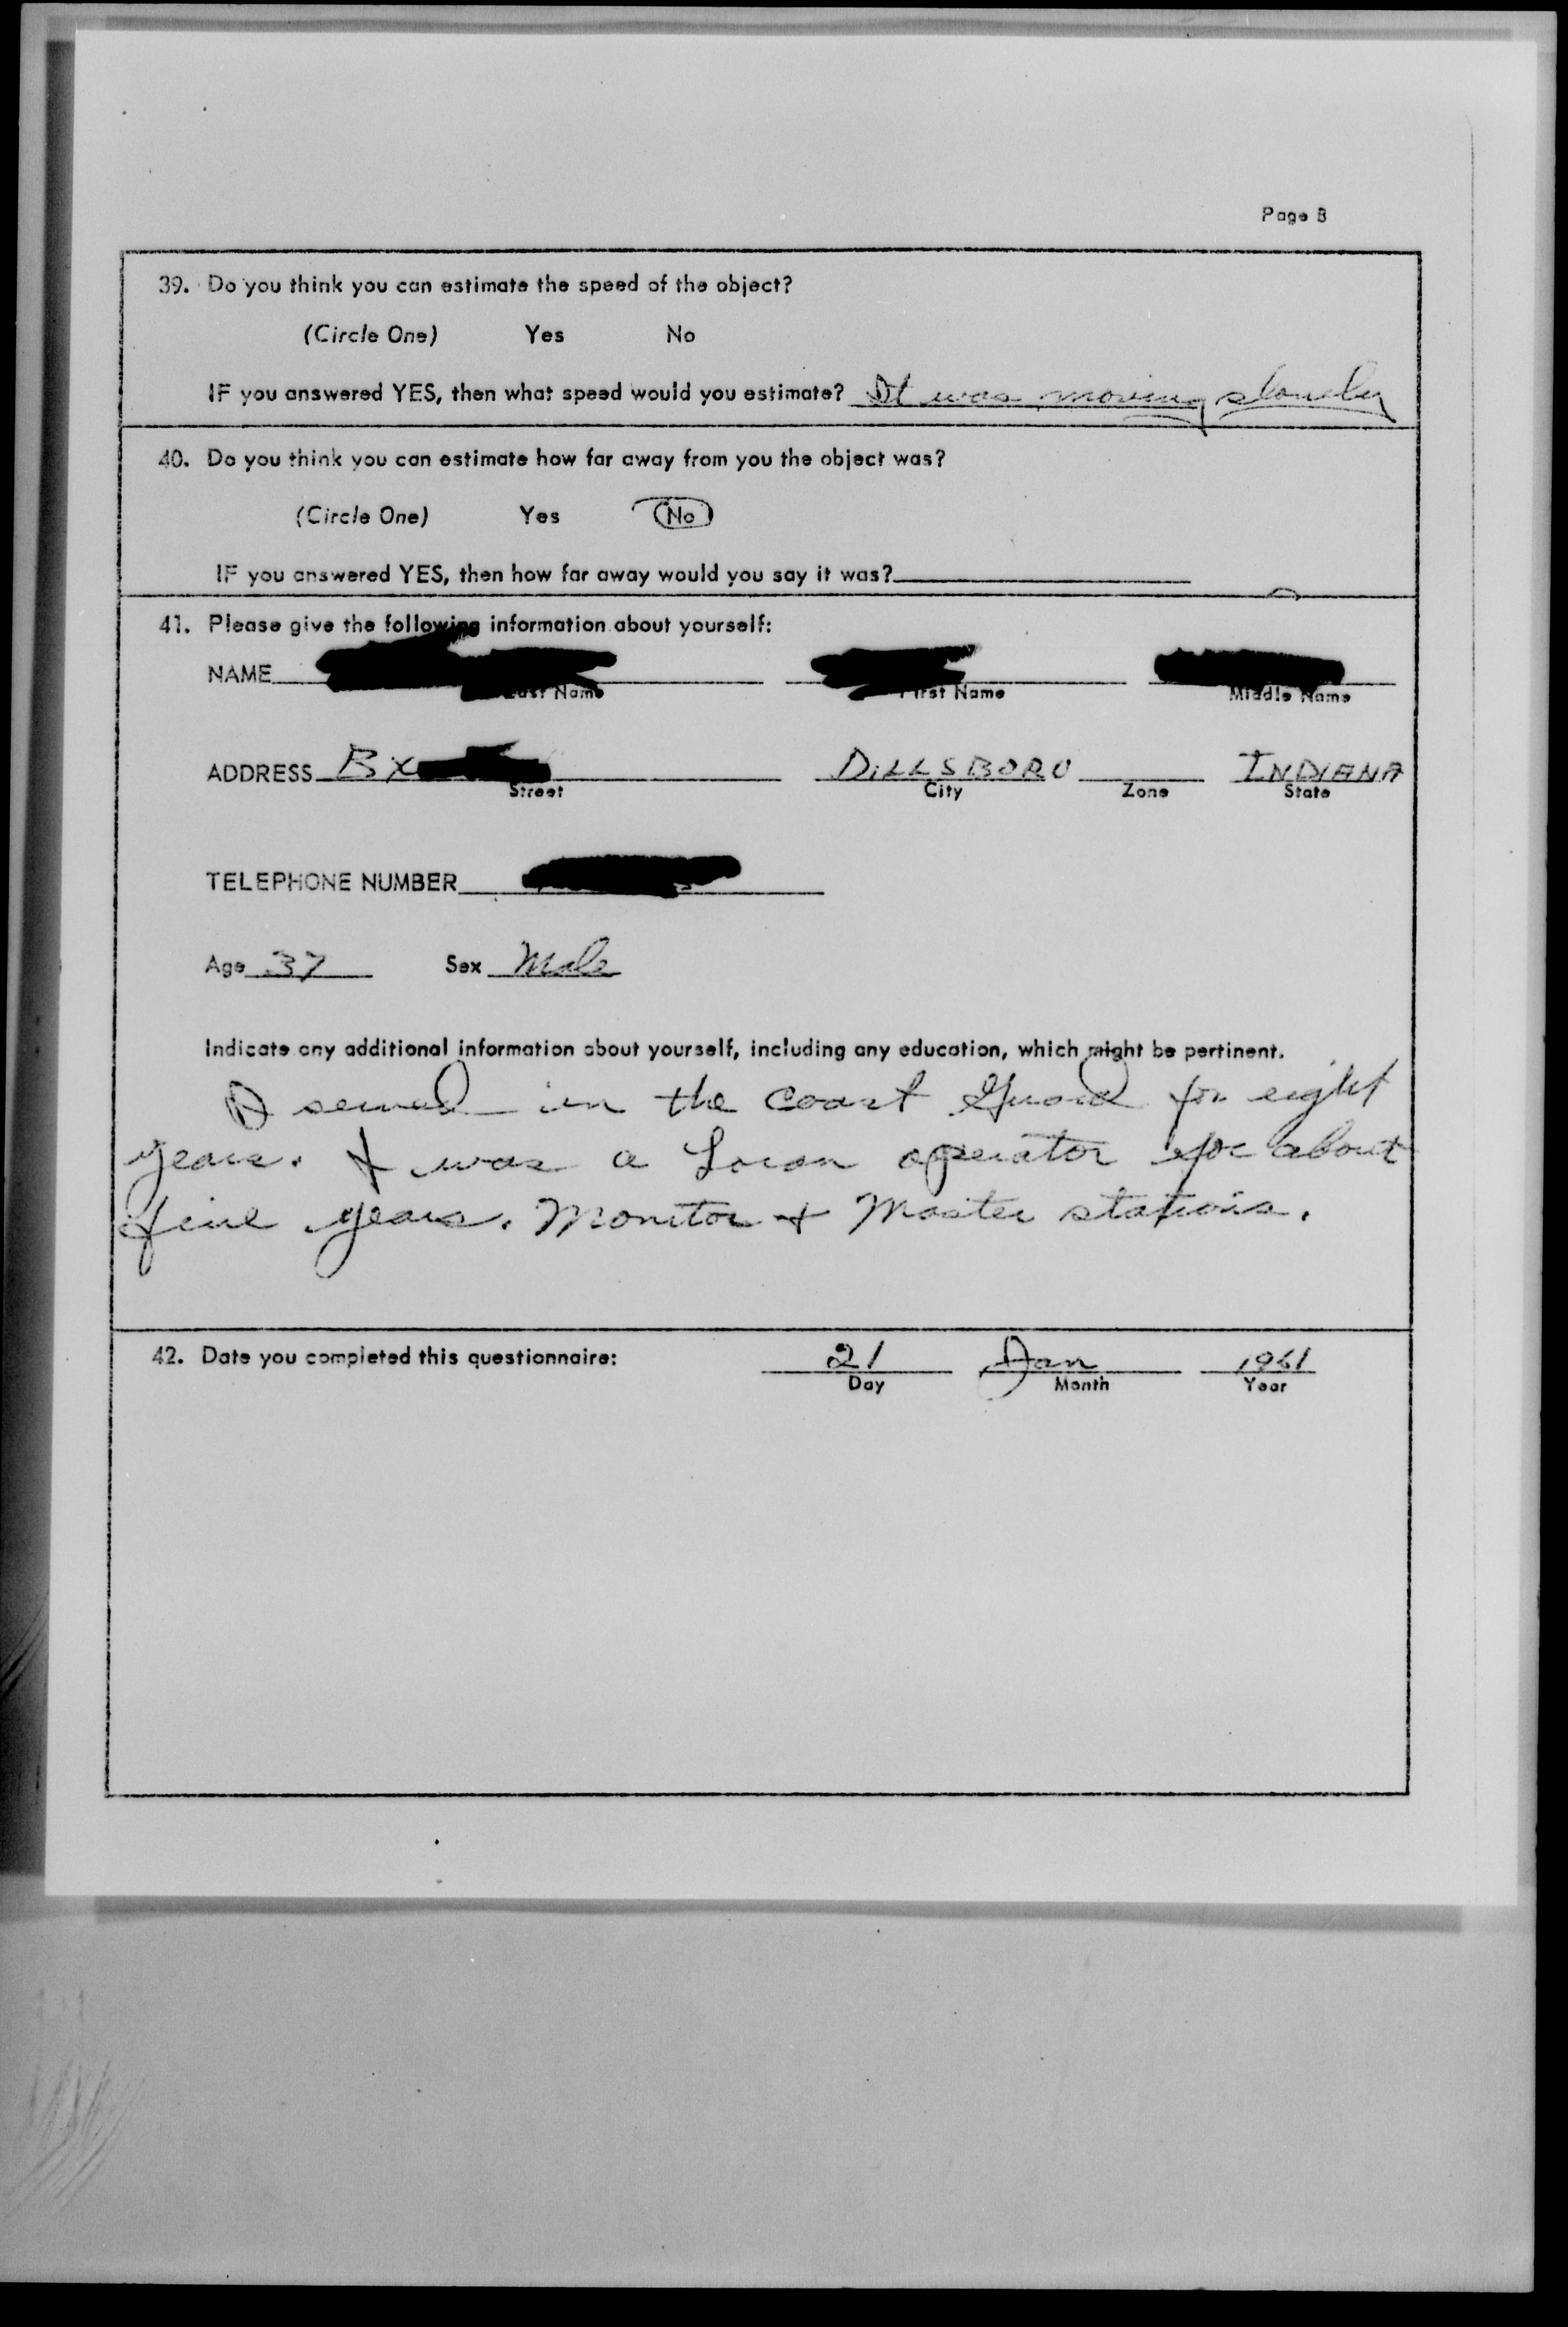 Page 8
39. Do you think you can estimate the speed of the object?
(Circle One) Yes No
IF you answered YES, then what speed would you estimate? It was moving slowly
40. Do you think you can estimate how far away from you the object was?
(Circle One) Yes No
IF you answered YES, then how far away would you say it was?
41. Please give the following information about yourself:
NAME
Last Name First Name Middle Name
ADDRESS BX DILLSBORO INDIANA
Street City Zone State
TELEPHONE NUMBER
Age 37 Sex Male
Indicate any additional information about yourself, including any education, which might be pertinent.
I served in the Coast Guard for eight
years. I was a Loran operator for about
five years. Monitor + Master stations.
42. Date you completed this questionnaire: 21 Jan 1961
Day Month Year